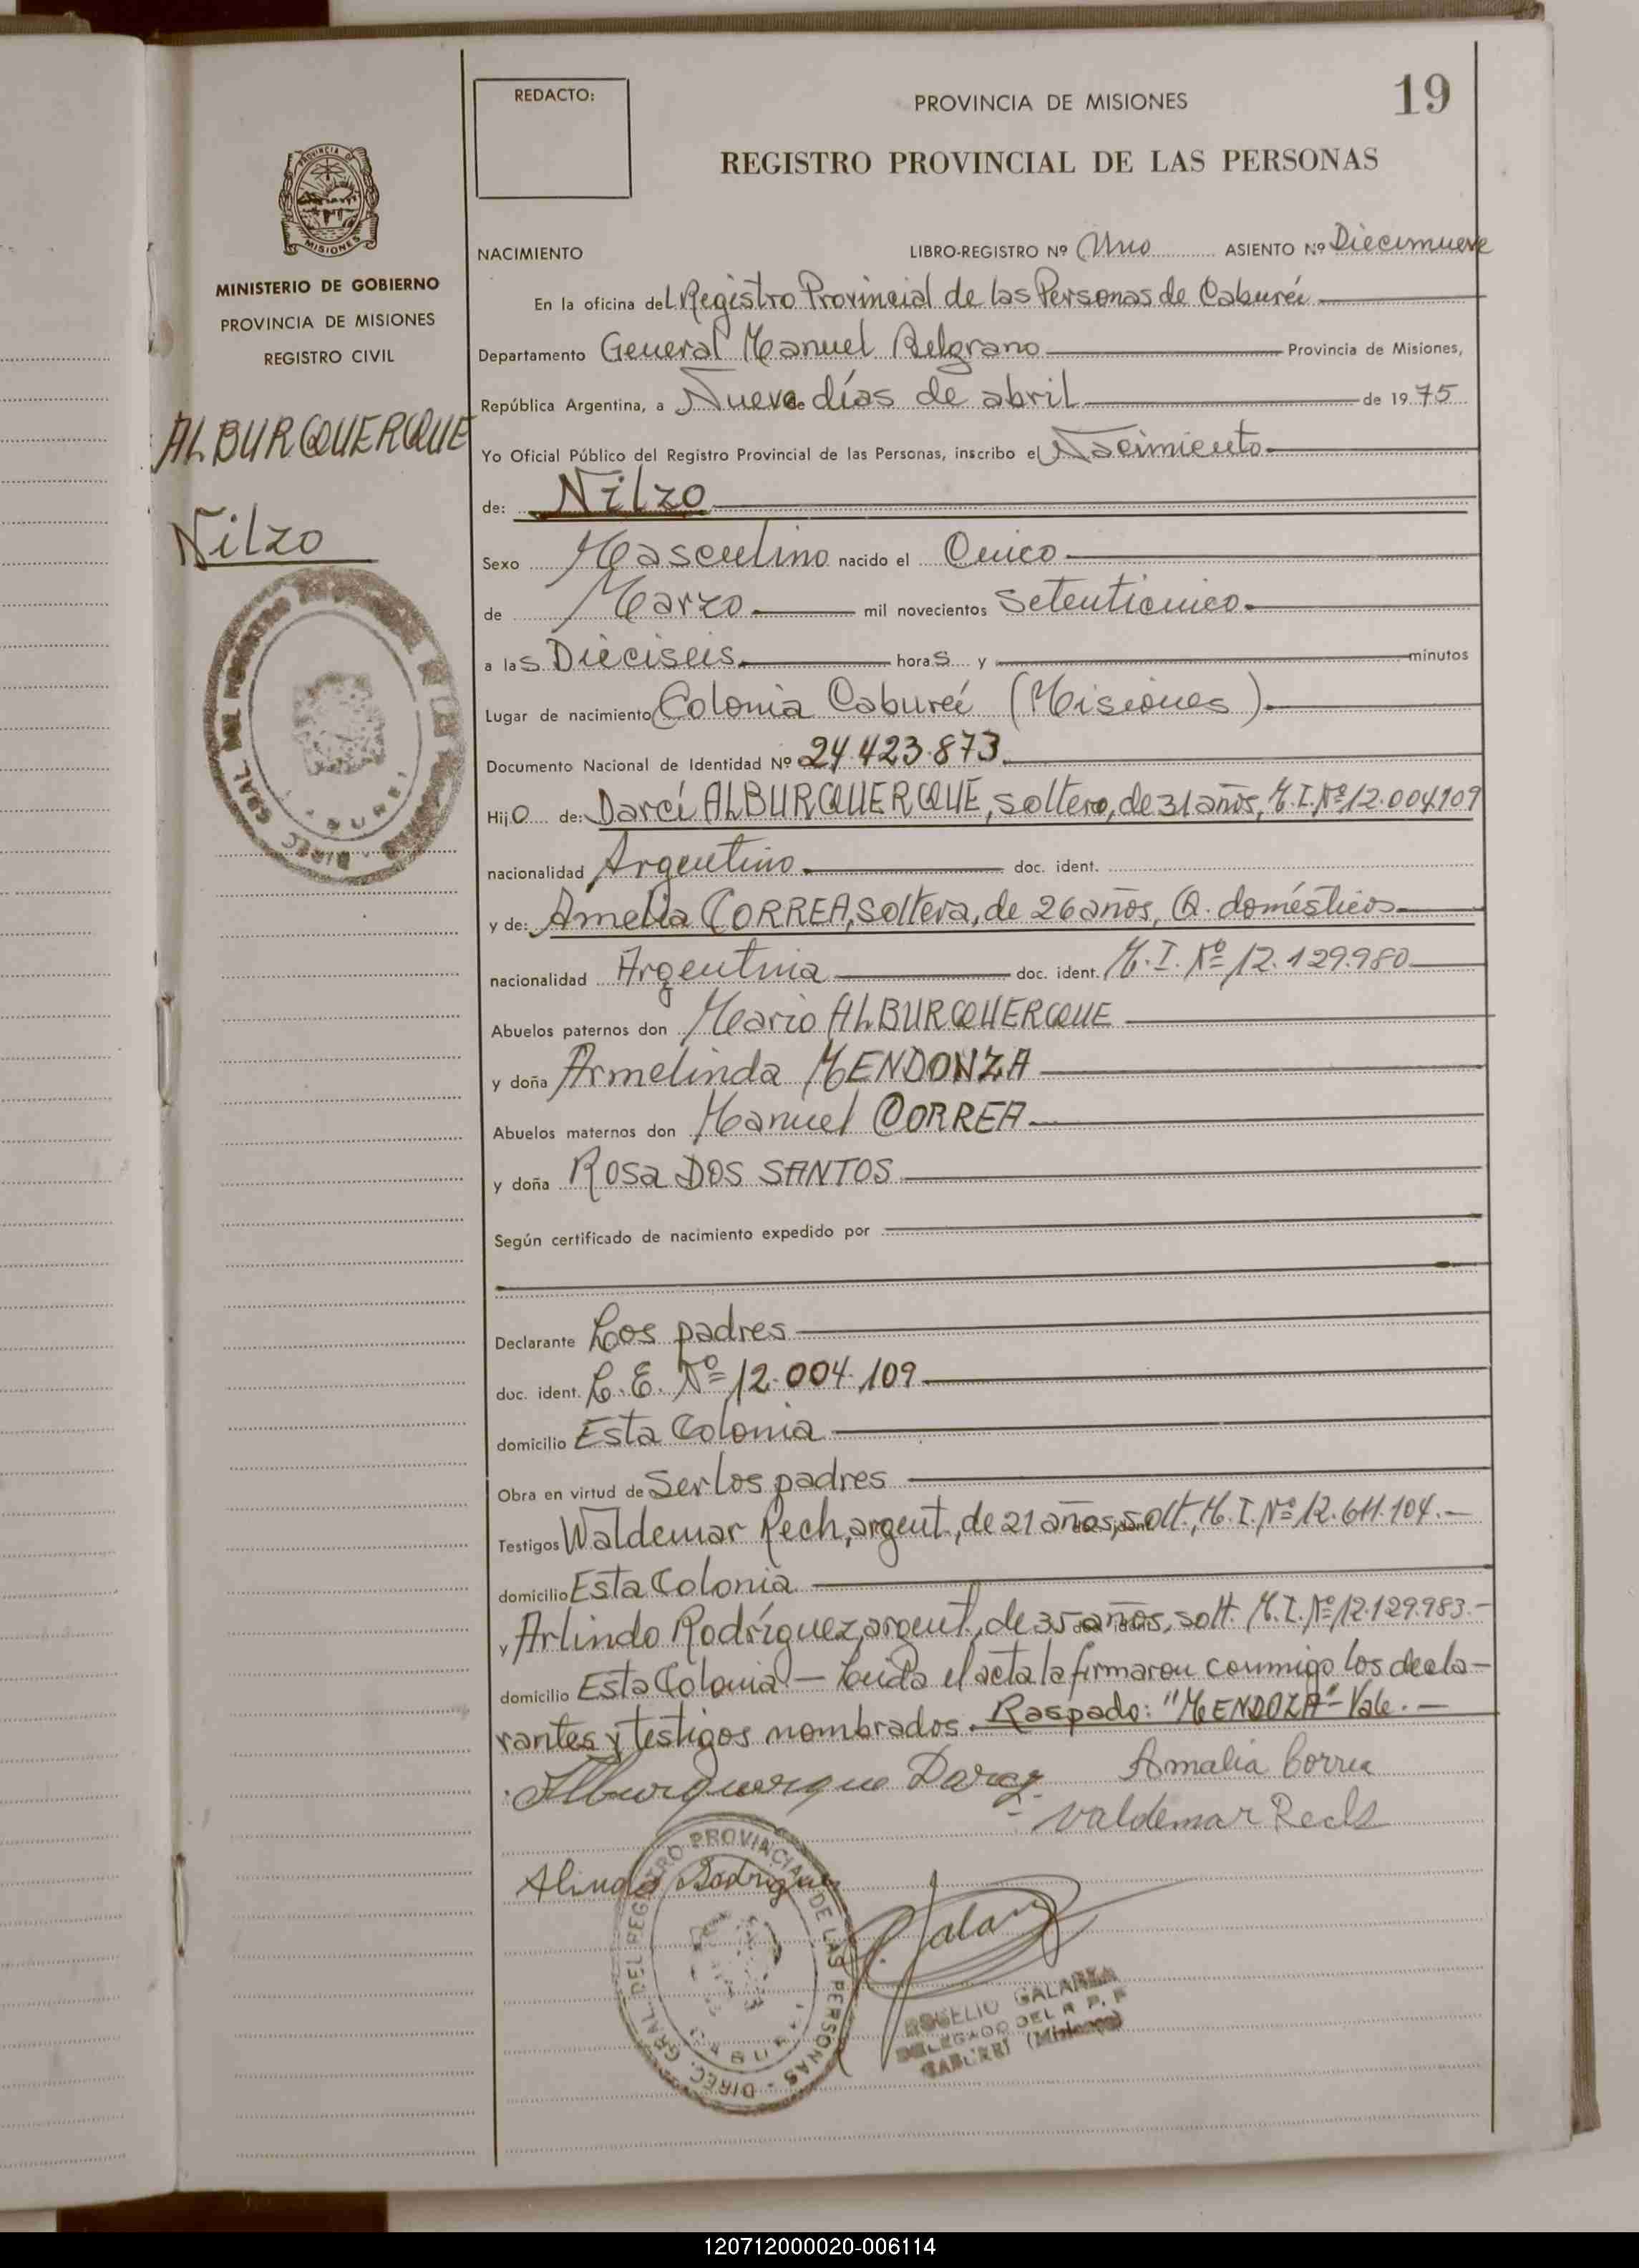 19
REDACTO:
PROVINCIA DE MISIONES
REGISTRO PROVINCIAL DE LAS PERSONAS
PROVINCIA DE
MISIONES
MINISTERIO DE GOBIERNO
PROVINCIA DE MISIONES
REGISTRO CIVIL
ALBURQUERQUE
Nilzo
DIREC. GRAL. DEL REGISTRO
NACIMIENTO LIBRO-REGISTRO Nº Uno ASIENTO Nº Diecinueve
En la oficina del Registro Provincial de las Personas de Cabureí
Departamento General Manuel Belgrano Provincia de Misiones,
República Argentina, a Nueve días de abril de 1975
Yo Oficial Público del Registro Provincial de las Personas, inscribo el Nacimiento
de: Nilzo
Sexo Masculino nacido el Cinco
de Marzo mil novecientos Setenticinco
a las Dieciseis horas y minutos
Lugar de nacimiento Colonia Cabureí (Misiones)
Documento Nacional de Identidad Nº 24.423.873
Hijo de: Darcí ALBURQUERQUE, soltero, de 31 años, M.I. Nº 12.004.109
nacionalidad Argentino doc. ident.
y de: Amelia CORREA, soltera, de 26 años, Q. domésticos
nacionalidad Argentina doc. ident. M.I. Nº 12.129.980
Abuelos paternos don Mario ALBURQUERQUE
y doña Armelinda MENDONZA
Abuelos maternos don Manuel CORREA
y doña Rosa DOS SANTOS
Según certificado de nacimiento expedido por
Declarante Los padres
doc. ident. L.E. Nº 12.004.109
domicilio Esta Colonia
Obra en virtud de Ser los padres
Testigos Waldemar Rech, argent., de 21 años, solt., M.I. Nº 12.611.104.-
domicilio Esta Colonia
y Arlindo Rodríguez, argent., de 35 años, solt. M.I. Nº 12.129.983.-
domicilio Esta Colonia - Leída el acta la firmaron conmigo los decla-
rantes y testigos nombrados. Raspado: "MENDOZA" - Vale. -
Alburquerque Darcy Amalia Correa
Valdemar Rech
Alindo Rodrigues
DIREC. GRAL. DEL REGISTRO PROVINCIAL DE LAS PERSONAS
ROGELIO GALARZA
DELEGADO DEL R. P. P.
CABUREI (Misiones)
120712000020-006114